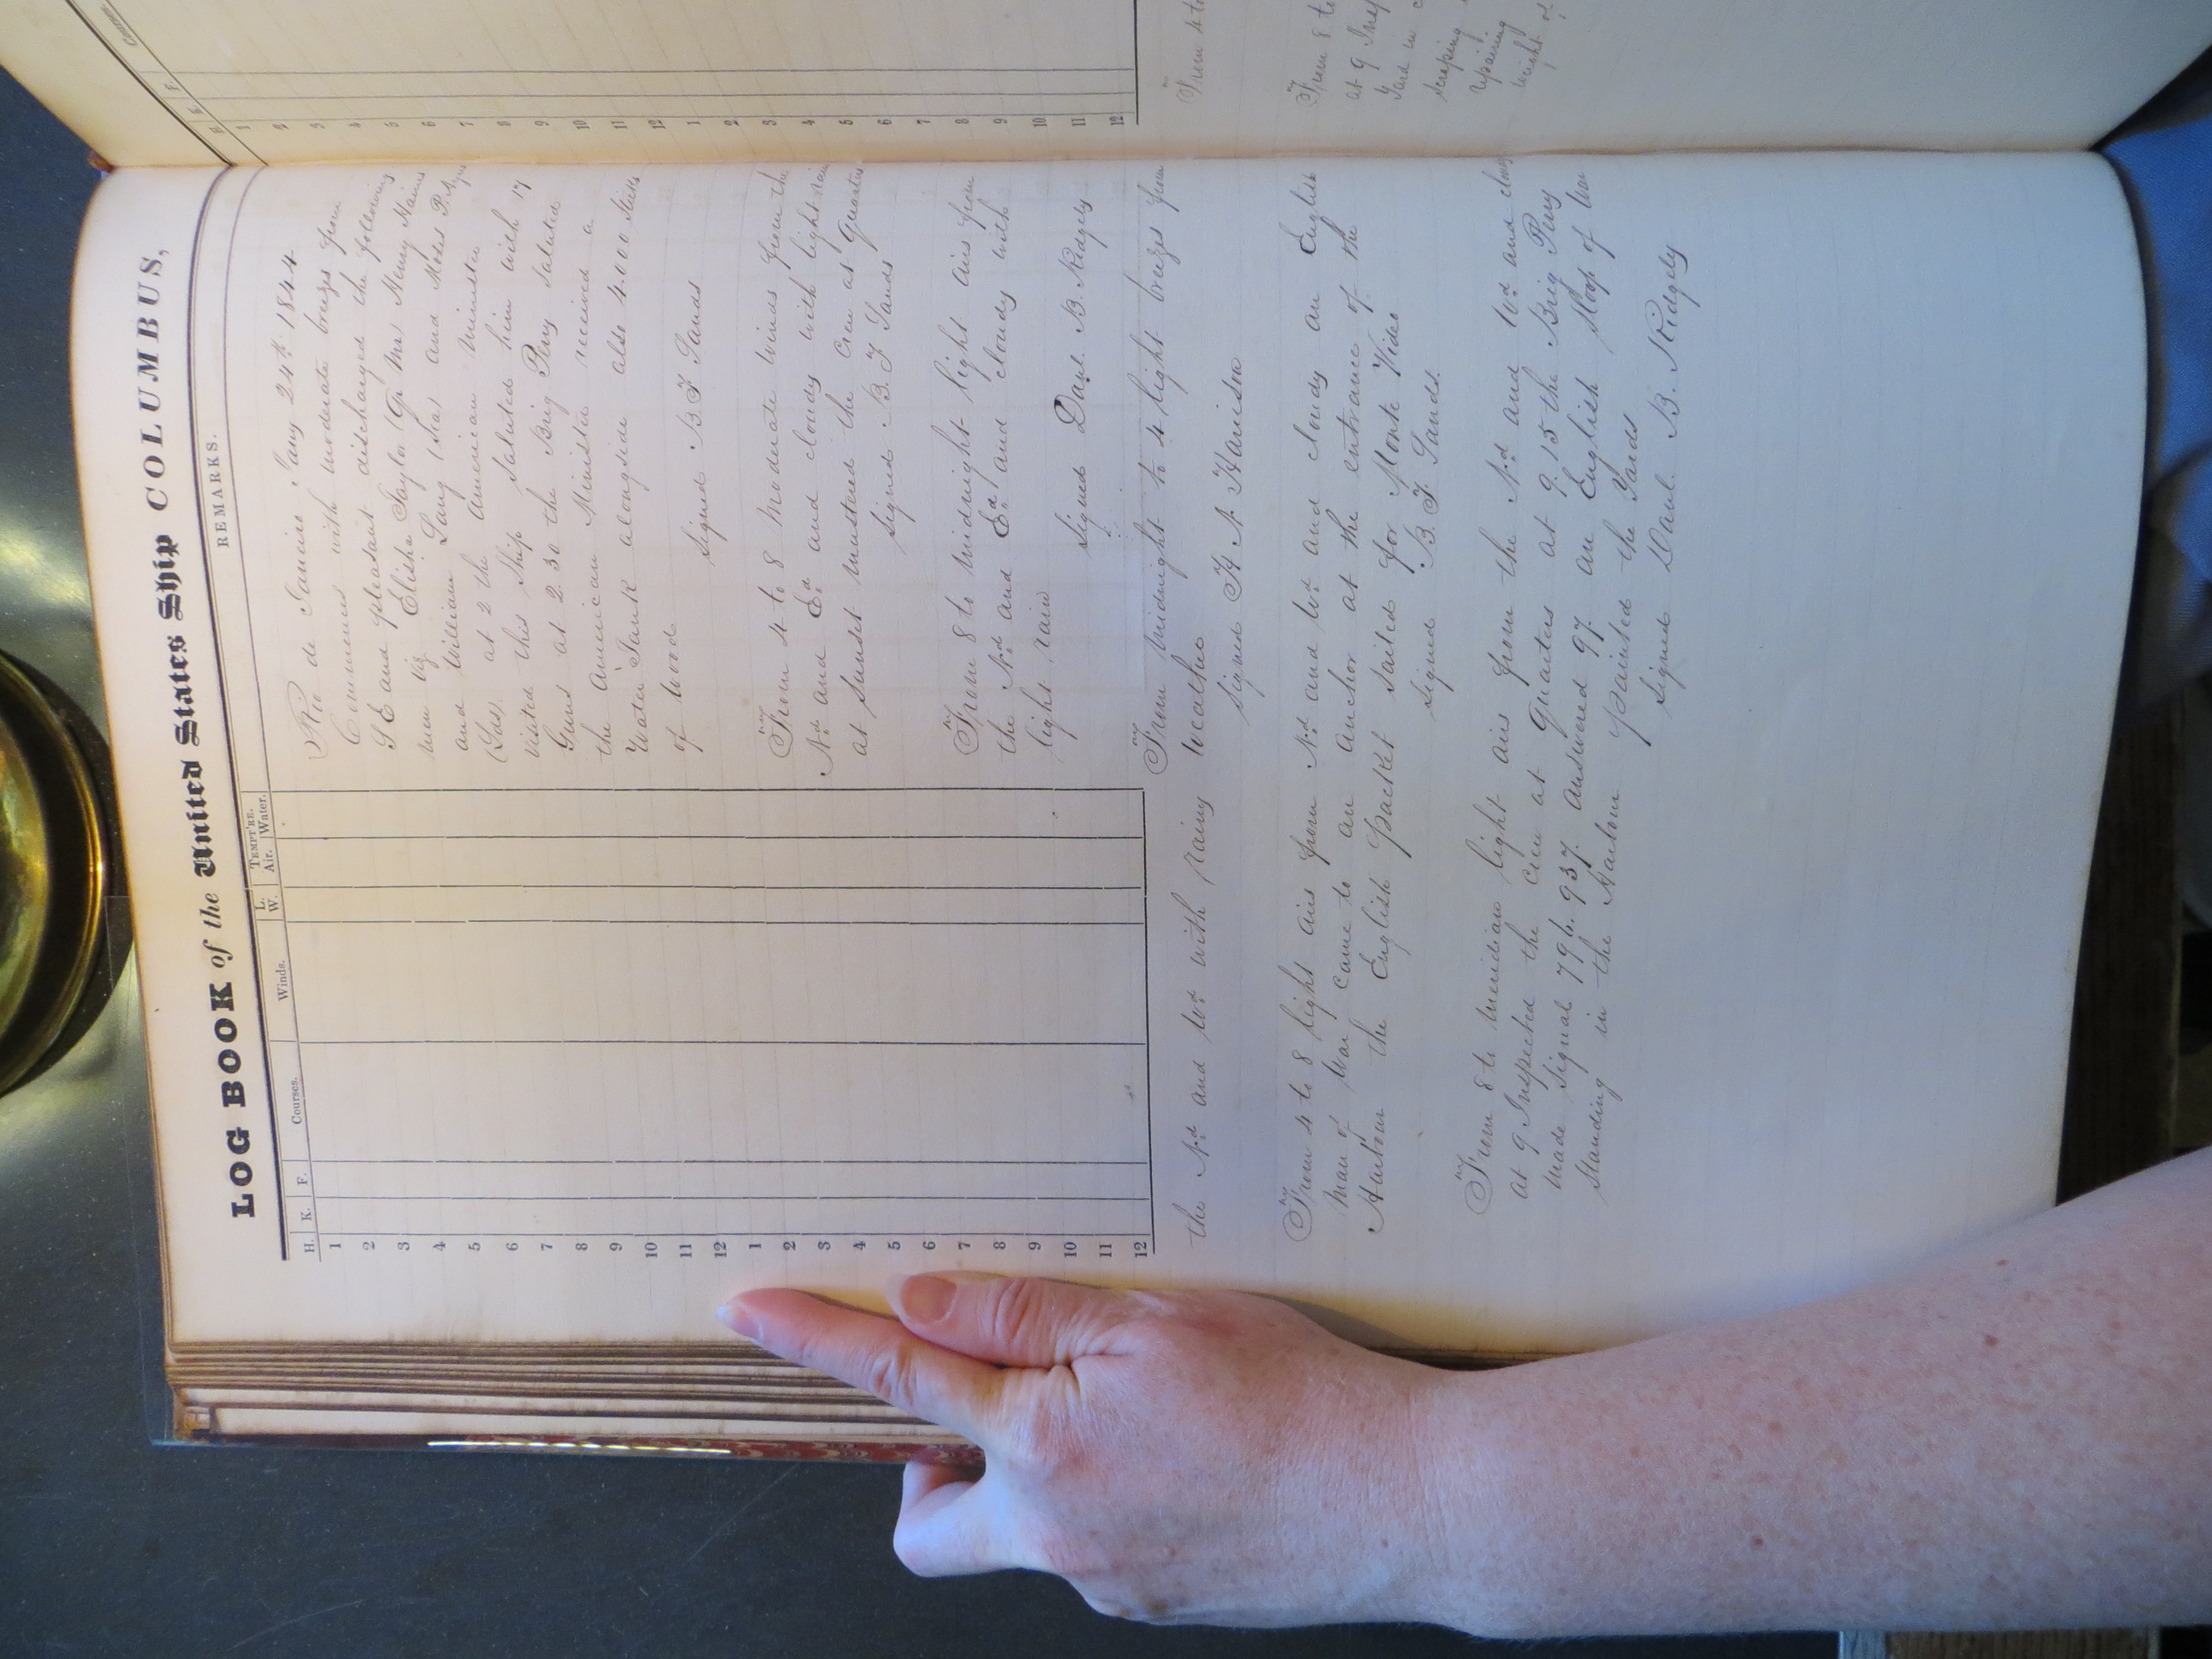 LOG BOOK of the United States Ship COLUMBUS,
REMARKS.
H. K. F. Courses. Winds. L. W. TEMPT'RE. Air. Water.
1
2
3
4
5
6
7
8
9
10
11
12
1
2
3
4
5
6
7
8
9
10
11
12
Rio de Janeiro Jany 24th 1844
Commences with moderate breezes from
S E and pleasant discharged the following
men viz Elisha Taylor Henry
and William Lang (Sea) and Moses
(Las) at 2 the American Minister
visited this Ship Saluted him with 17
Guns at 2.30 the Brig Perry Saluted
the American Minister received a
Water Tank alongside also 4.000 Sticks
of Wood
Signed B F Sands
From 4 to 8 Moderate winds from the
Nd and Ed and cloudy with light rain
at Sunset mustered the Crew at Quarters
Signed B F Sands
From 8 to Midnight light airs from
the Nd and Ed and cloudy with
light rain
Signed Danl B. Ridgely
From Midnight to 4 light breezes from
the Nd and Wd with rainy weather
Signed H N Harison
From 4 to 8 light airs from Nd and Wd and cloudy an English
Man of War came to an anchor at the entrance of the
Harbour the English Packet sailed for Monte Video
Signed B. F. Sands.
From 8 to Meridian light airs from the Nd and Wd and cloudy
at 9 Inspected the Crew at Quarters at 9.15 the Brig Perry
made Signal 796. 937. answered 97. an English Sloop of War
Standing in the Harbour painted the Yards
Signed Danl. B. Ridgely
H. K. F.
1
2
3
4
5
6
7
8
9
10
11
12
1
2
3
4
5
6
7
8
9
10
11
12
From 4 to
From 8 to
at 9
Yard in
scraping
repairing
weight of